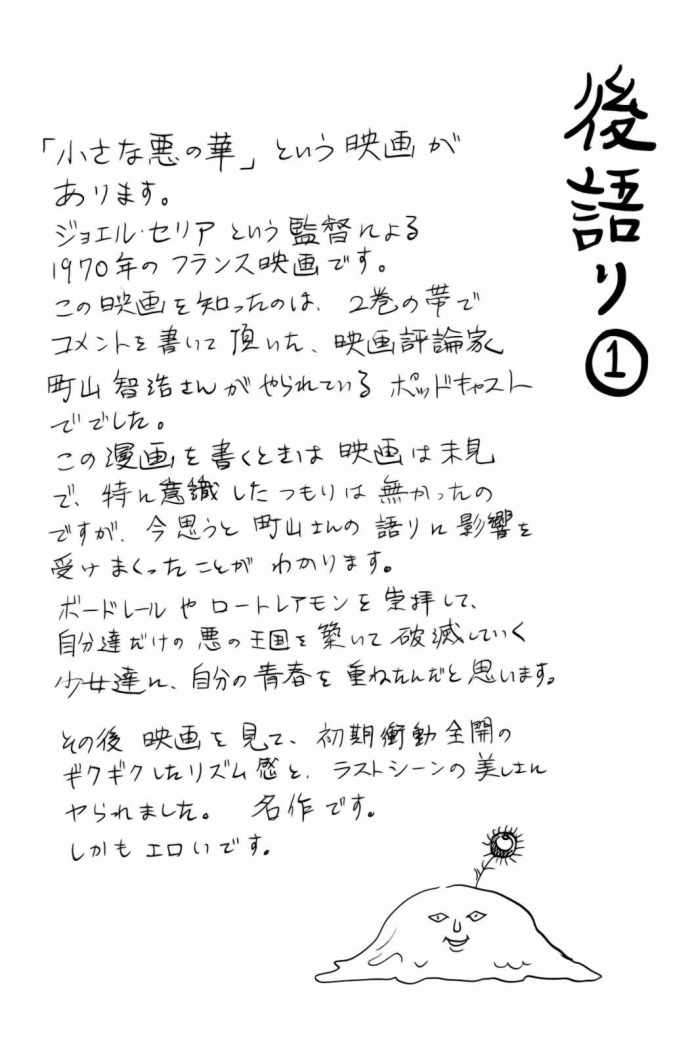 後語り①
「小さな悪の華」という映画が
あります。
ジョエル・セリアという監督による
1970年のフランス映画です。
この映画を知ったのは、2巻の帯で
コメントを書いて頂いた、映画評論家
町山智浩さんがやられているポッドキャスト
ででした。
この漫画を書くときは映画は未見
で、特に意識したつもりは無かったの
ですが、今思うと町山さんの語りに影響を
受けまくったことがわかります。
ボードレールやロートレアモンを崇拝して、
自分達だけの悪の王国を築いて破滅していく
少女達に、自分の青春を重ねたんだと思います。
その後映画を見て、初期衝動全開の
ギクギクしたリズム感と、ラストシーンの美しさに
ヤられました。 名作です。
しかもエロいです。